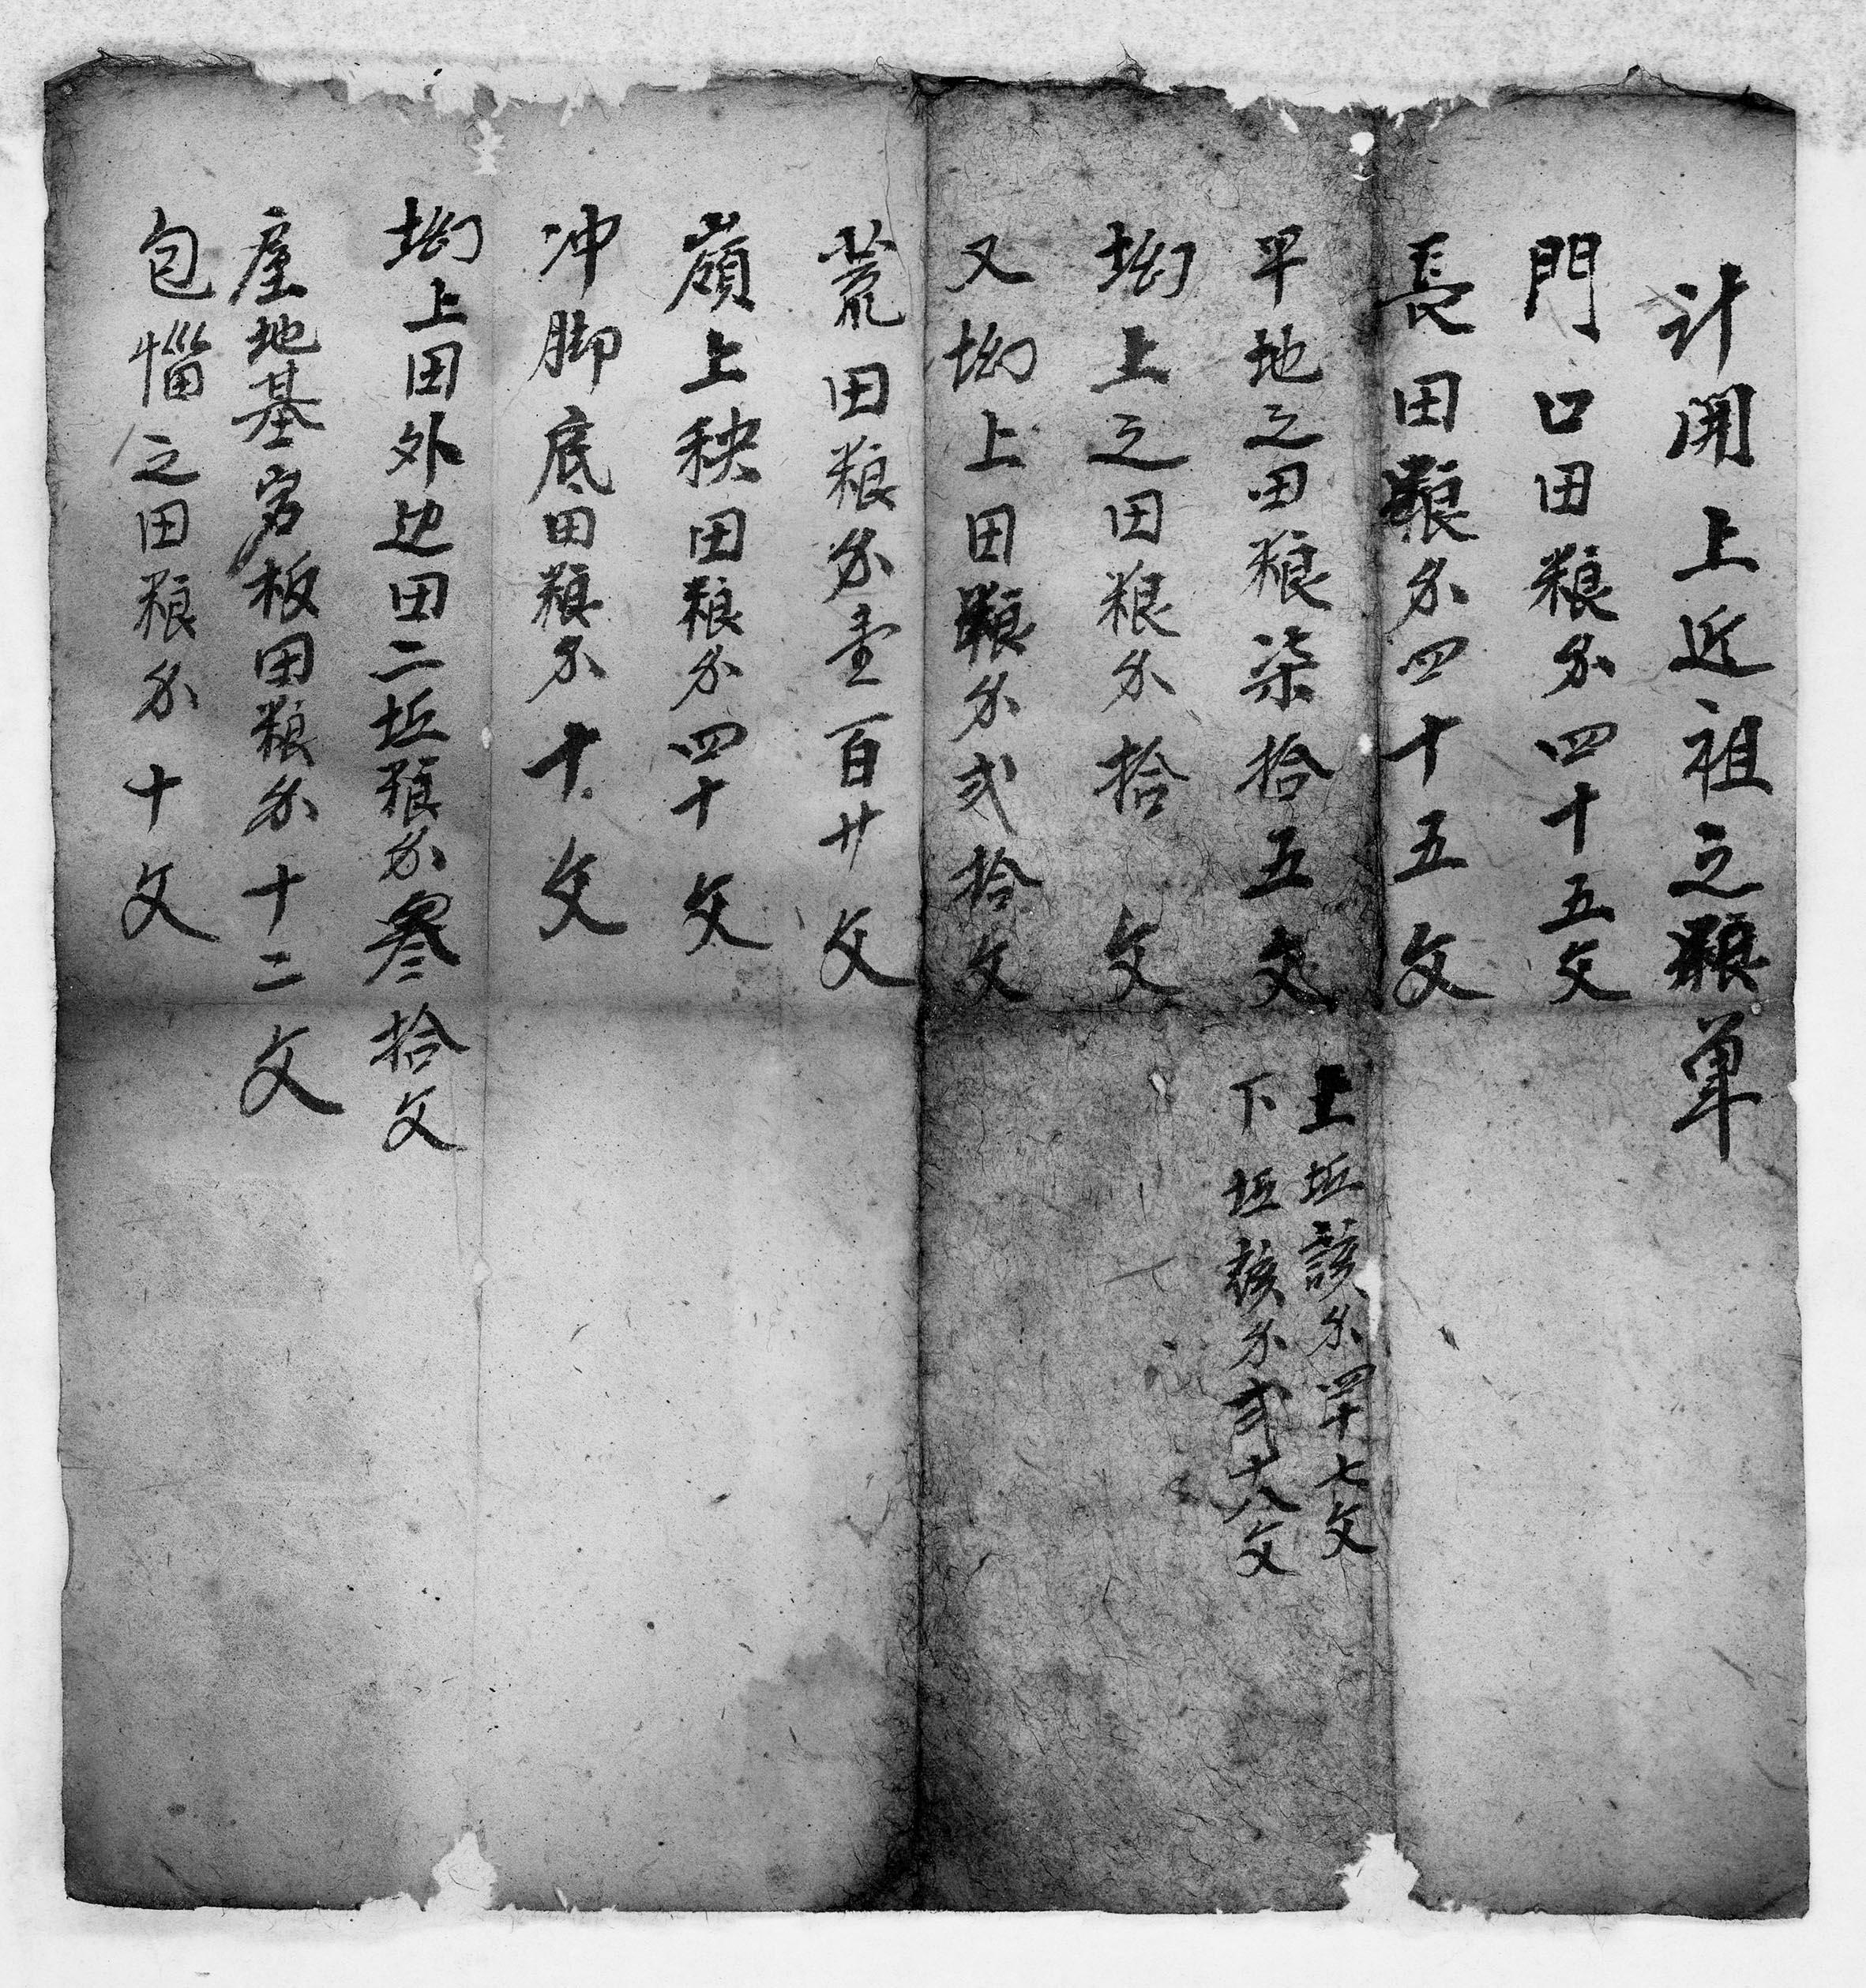 计開上近祖之粮单
門口田粮分四十五文
長田粮分四十五文
平地之田粮柒拾五文
上坵該分四十七文
下坵該分弍十八文
坳上之田粮分拾文
又坳上田粮分弍拾文
荒田粮分壹百廿文
嶺上秧田粮分四十文
冲脚底田粮分十文
坳上田外边田二坵粮分叁拾文
地基板田粮分十二文
包惱之田粮分十文